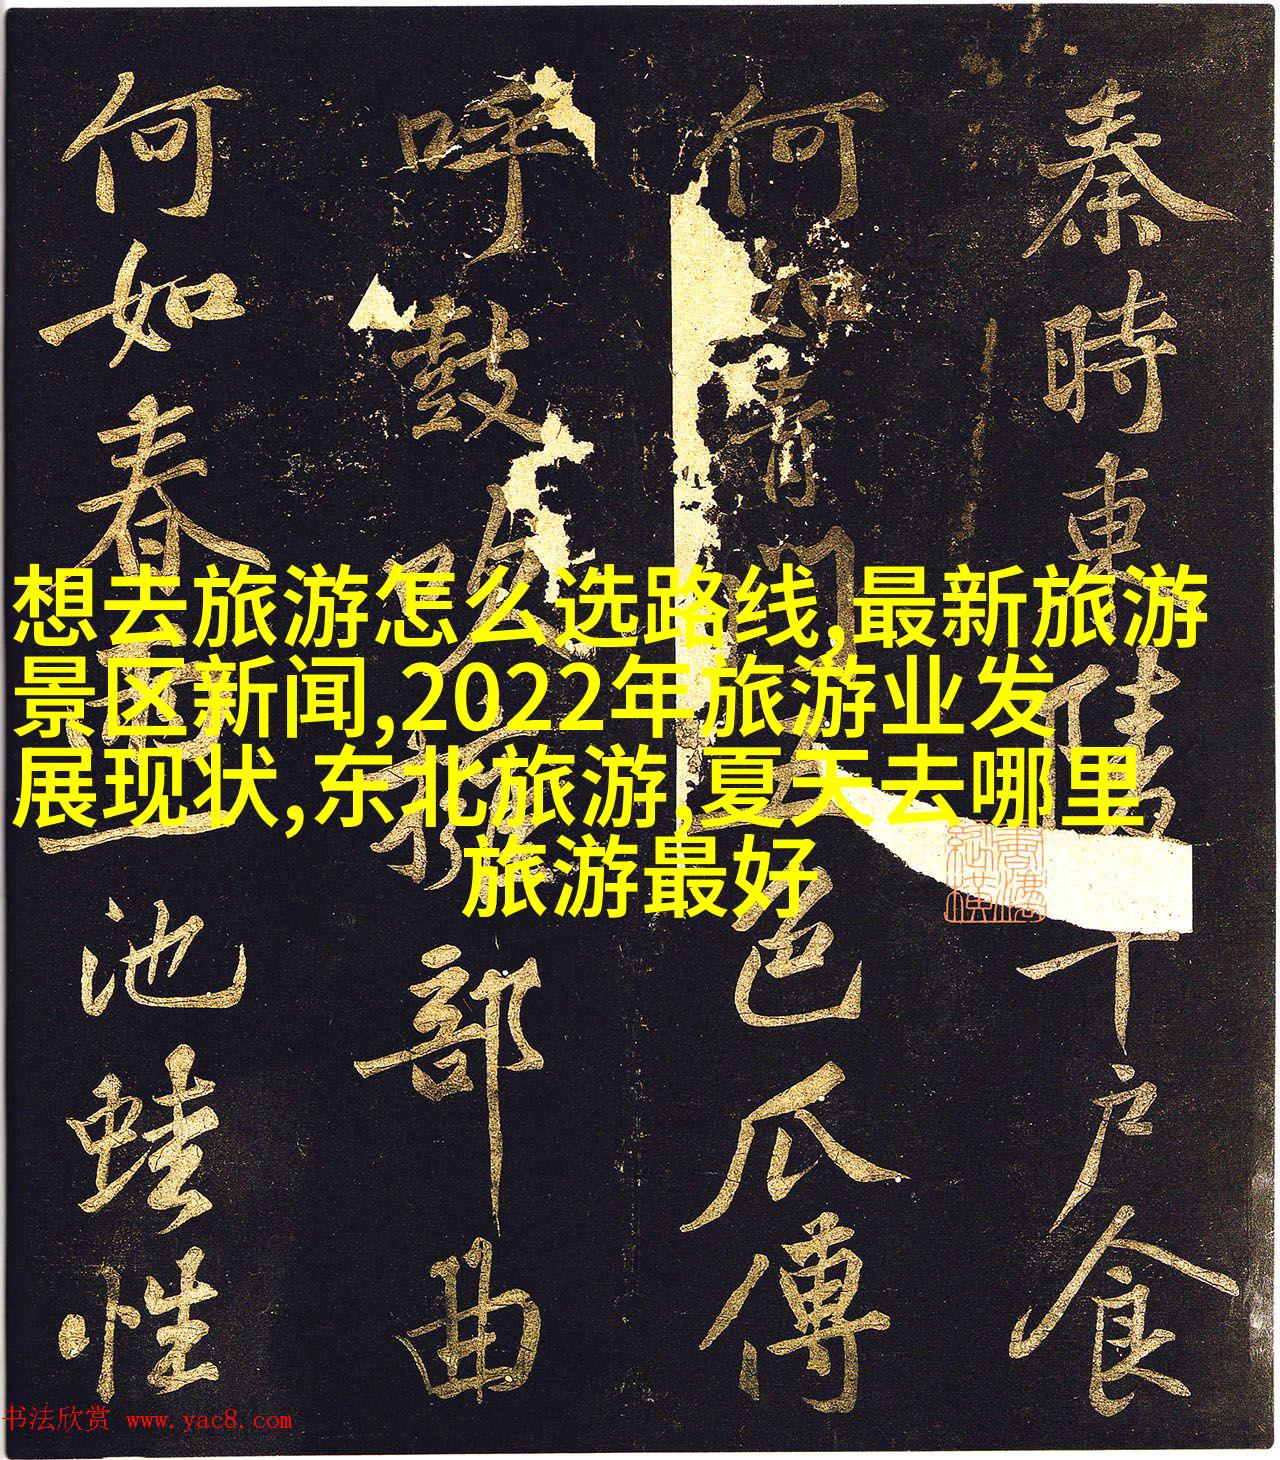 想去旅游怎么选路线,最新旅游
景区新闻,2022年旅游业发
展现状,东北旅游,夏天去哪里
旅游最好
秦時東陵千戶食
何如青門色瓜傳
呼鼓吹擁部曲
何如春雨一池蛙性
书法欣赏 www.yac8.com